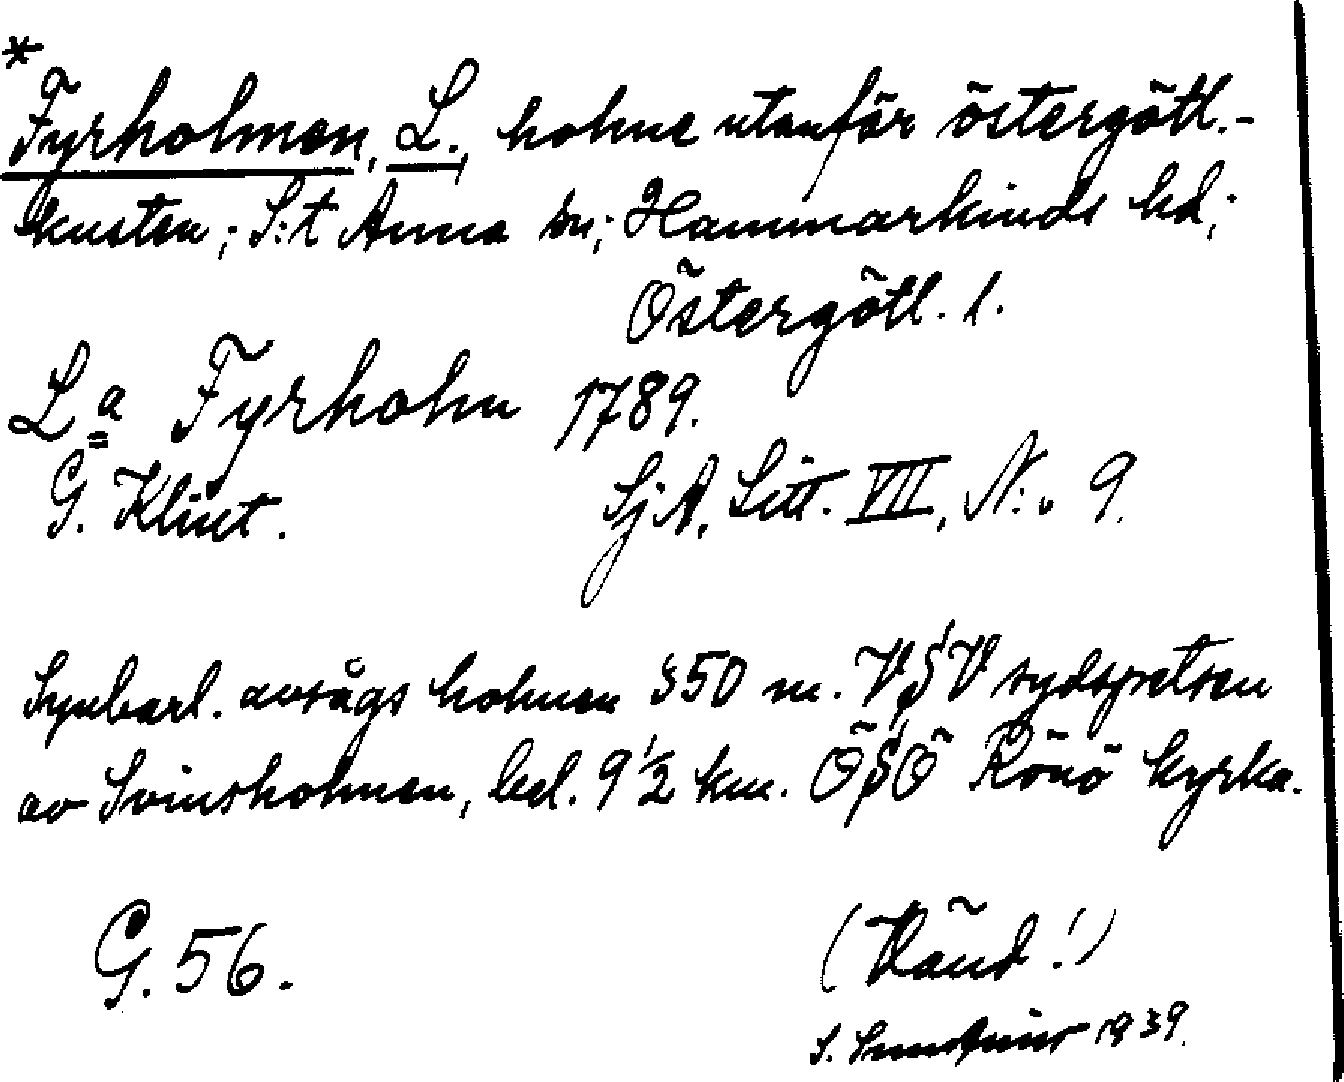 *
Fyrholmen, L., holme utanför östergötl.-
kusten; S:t Anna sn; Hammarkinds hd;
Östergötl. l.
La Fyrholm 1789.
G. Klint. SjA, Litt. VII, N:o 9.
Synbarl. avsågs holmen 350 m. VSV sydspetsen
av Svinsholmen, bel. 9 1/2 km. ÖSÖ Rönö kyrka.
G. 56. (Vänd!)
S. 1939.